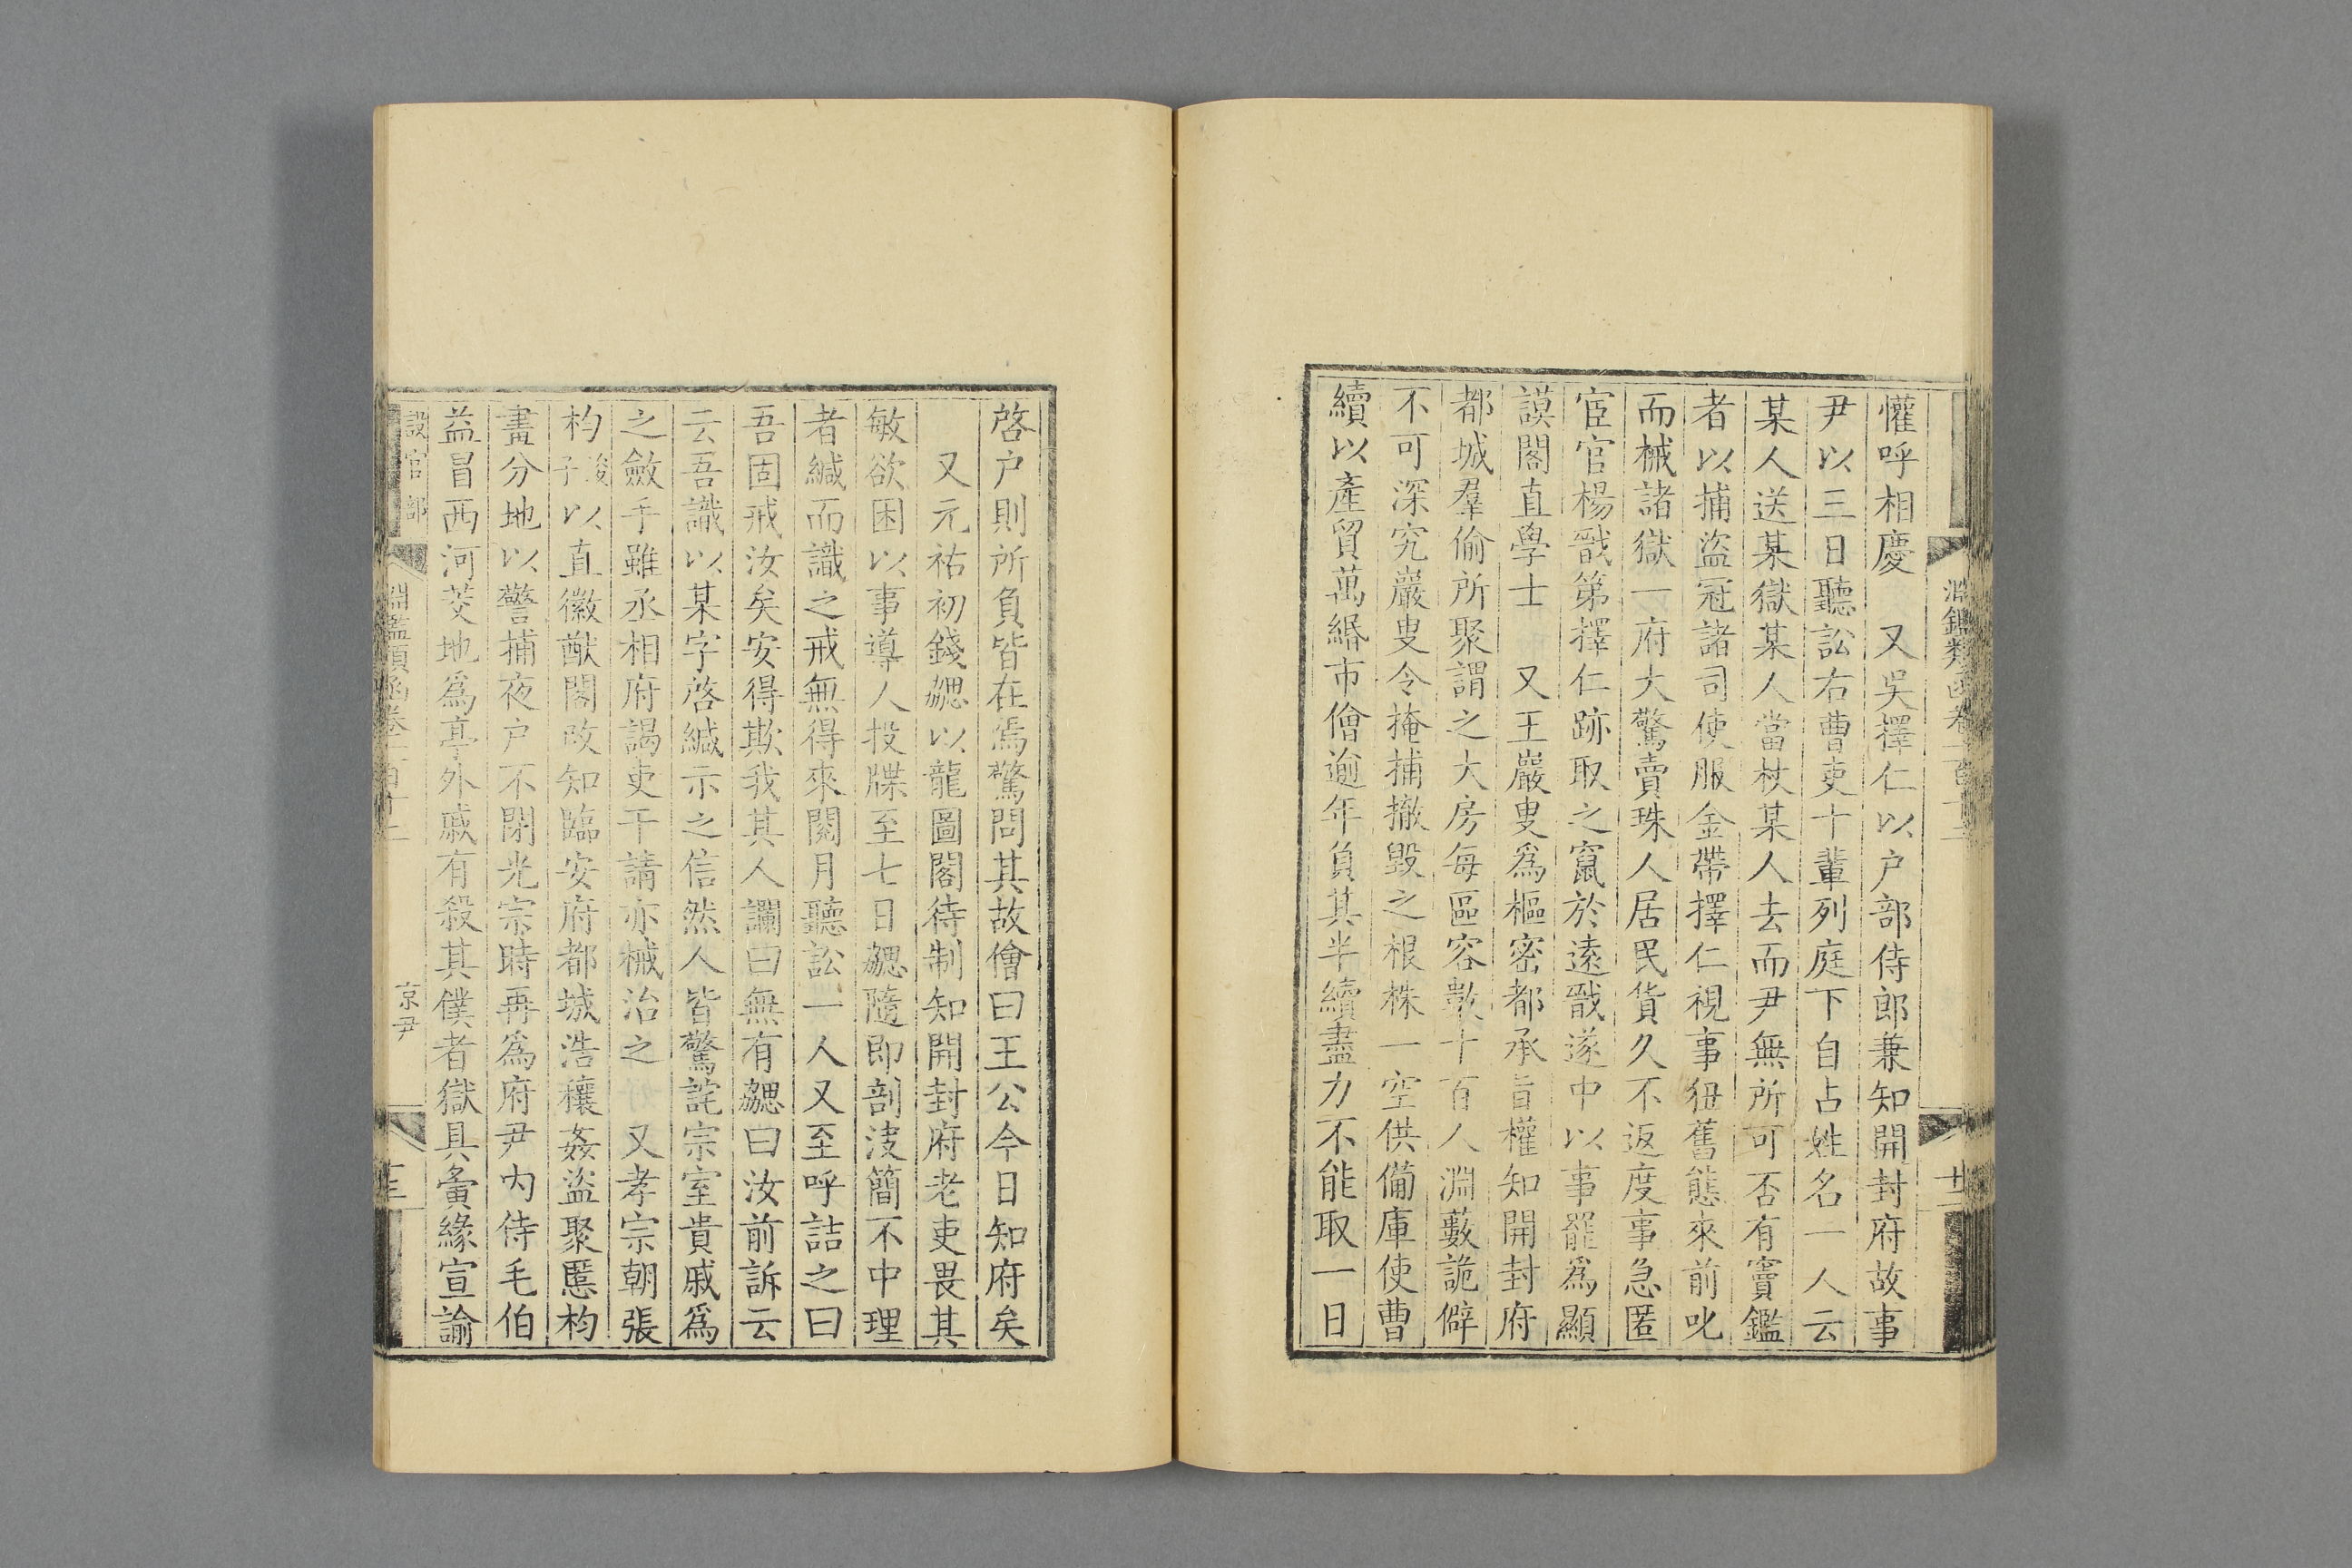 懽呼相慶　又吳擇仁以户部侍郎兼知開封府故事
尹以三日聽訟右曹吏十輩列庭下自占姓名一人云
某人送某獄某人當杖某人去而尹無所可否有竇鑑
者以捕盜冠諸司使服金帶擇仁視事狃舊態來前叱
而械諸獄一府大驚賣珠人居民貨久不返度事急匿
宦官楊戩第擇仁跡取之竄於遠戩遂中以事罷爲顯
謨閣直學士　又王巖叟爲樞密都承旨權知開封府
都城羣偷所聚謂之大房每區容數十百人淵藪詭僻
不可深究巖叟令掩捕撤毀之根株一空供備庫使曹
續以產貿萬緡市儈逾年負其半續盡力不能取一日
啓户則所負皆在焉驚問其故儈曰王公今日知府矣
又元祐初錢勰以龍圖閣待制知開封府老吏畏其
敏欲困以事導人投牒至七日勰隨即剖決簡不中理
者緘而識之戒無得來閱月聽訟一人又至呼詰之曰
吾固戒汝矣安得欺我其人讕曰無有勰曰汝前訴云
云吾識以某字啓緘示之信然人皆驚詫宗室貴戚爲
之斂手雖丞相府謁吏干請亦械治之　又孝宗朝張
杓浚子以直徽猷閣改知臨安府都城浩穰姦盜聚慝杓
畫分地以警捕夜户不閉光宗時再爲府尹内侍毛伯
益冒西河茭地爲亭外戚有殺其僕者獄具夤緣宣諭
設官部
淵鑑類函卷一百十二
京尹